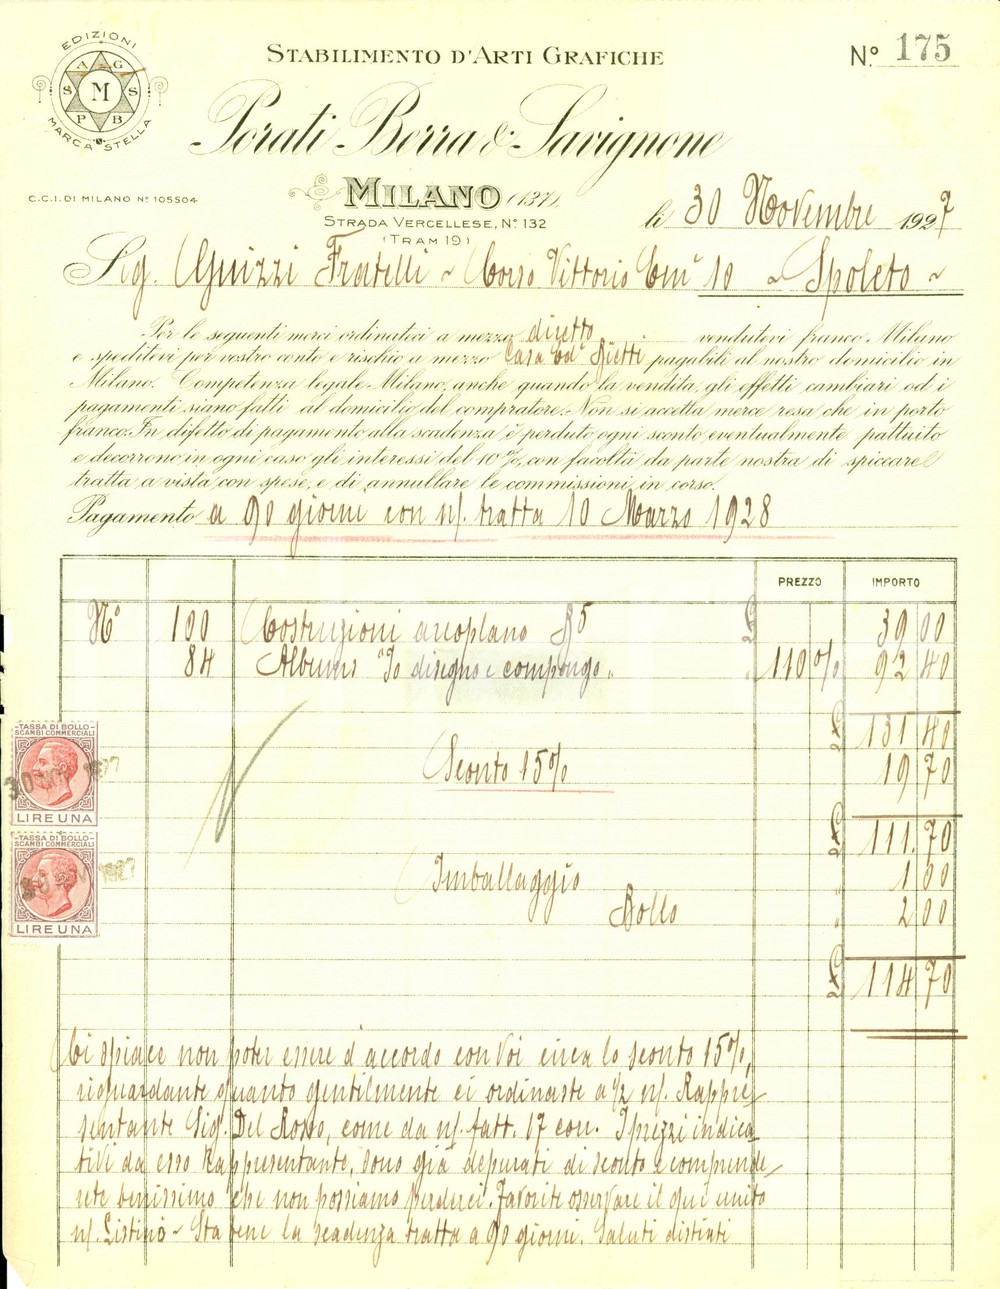 EDIZIONI
A G
S M S
P B
MARCA STELLA
STABILIMENTO D'ARTI GRAFICHE
N.º 175
Porati Berra & Savignone
C.C.I. DI MILANO Nº 105504
MILANO (137)
STRADA VERCELLESE, Nº 132
(TRAM 19)
li 30 Novembre 1927
Sig. Guizzi Fratelli - Corso Vittorio Em 10 - Spoleto -
Per le seguenti merci ordinateci a mezzo diretto vendutevi franco Milano
e speditevi per vostro conto e rischio a mezzo Casa Ed pagabili al nostro domicilio in
Milano. Competenza legale Milano, anche quando la vendita, gli effetti cambiari od i
pagamenti siano fatti al domicilio del compratore. Non si accetta merce resa che in porto
franco. In difetto di pagamento alla scadenza è perduto ogni sconto eventualmente pattuito
e decorrono in ogni caso gli interessi del 10%, con facoltà da parte nostra di spiccare
tratta a vista con spese, e di annullare le commissioni in corso.
Pagamento a 90 giorni con n/. tratta 10 Marzo 1928
PREZZO IMPORTO
Nº 100 Costruzioni areoplano 39 00
84 Albums "Io disegno e compongo" 110 % 92 40
131 40
Sconto 15% 19 70
111. 70
Imballaggio 1 00
Bollo 2 00
114 70
TASSA DI BOLLO
SCAMBI COMMERCIALI
30 NOV 1927
LIRE UNA
TASSA DI BOLLO
SCAMBI COMMERCIALI
30 NOV 1927
LIRE UNA
Ci spiace non poter essere d'accordo con Voi circa lo sconto 15%,
riguardante quando gentilmente ci ordinaste a 1/2 n/. Rappre/
sentante Sig. Del Rosso, come da n/. fatt. 17 cor. I prezzi indica/
tivi da esso Rappresentante, sono già depurati di sconto e comprende/
rete benissimo che non possiamo perderci. Favorite osservare il qui unito
n/. Listino - Sta bene la scadenza tratta a 90 giorni. Saluti distinti